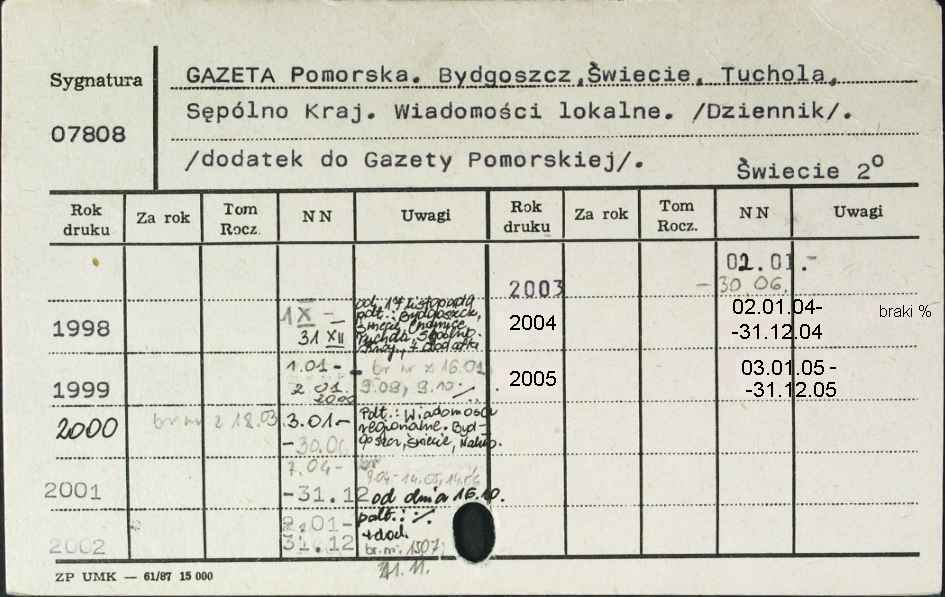 Sygnatura
07808
GAZETA Pomorska. Bydgoszcz,Świecie, Tuchola,
Sępólno Kraj. Wiadomości lokalne. /Dziennik/.
/dodatek do Gazety Pomorskiej/.
Świecie 2º
Rok druku Za rok Tom Rocz. N N Uwagi Rok druku Za rok Tom Rocz. N N Uwagi
2003 02.01.-
-30.06.
1998 1 X -
31 XII
od 17 listopada
podt.: Bydgoszcz,
2004 02.01.04-
-31.12.04
braki %
1999 1.01-
2 01.
2000
br nr z 16.01
9.08, 9.10
2005 03.01.05-
-31.12.05
2000 br nr z 18.03 3.01-
-30.06
Podt.: Wiadomości
regionalne. Byd-
goszcz, Świecie, Nakło.
2001 7.04-
-31.12
od dnia 16.10.
podt.:
2002 2.01-
31.12
+ dod.
br. nr.
21.11.
ZP UMK — 61/87 15 000